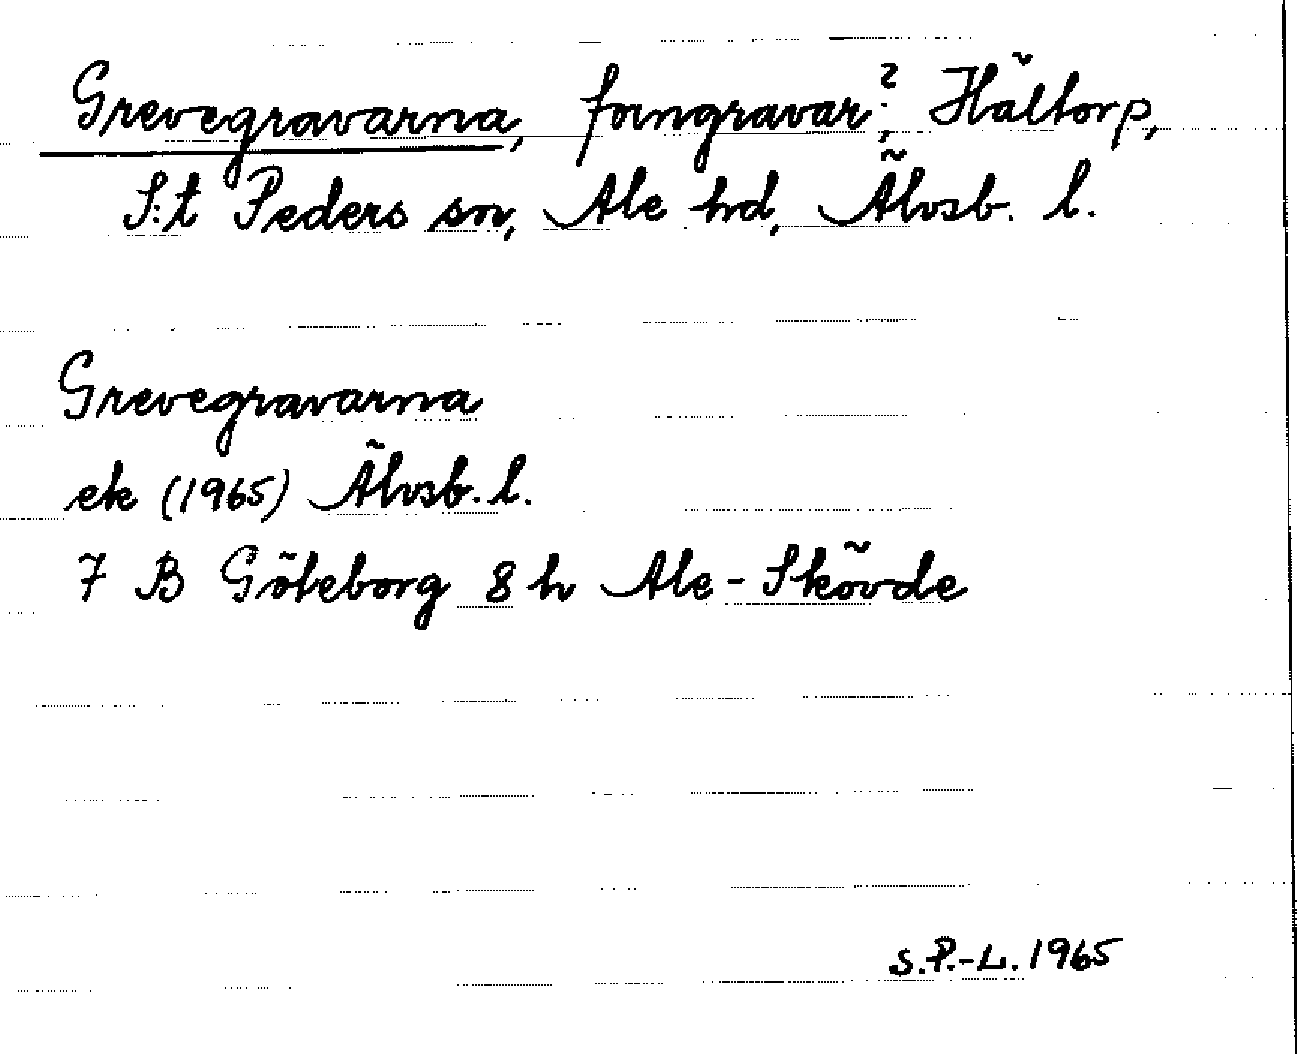 Grevegravarna, forngravar?, Hältorp,
S:t Peders sn, Ale hd, Älvsb. l.
Grevegravarna
ek (1965) Älvsb. l.
7 B Göteborg 8 h Ale-Skövde
S.P.-L. 1965